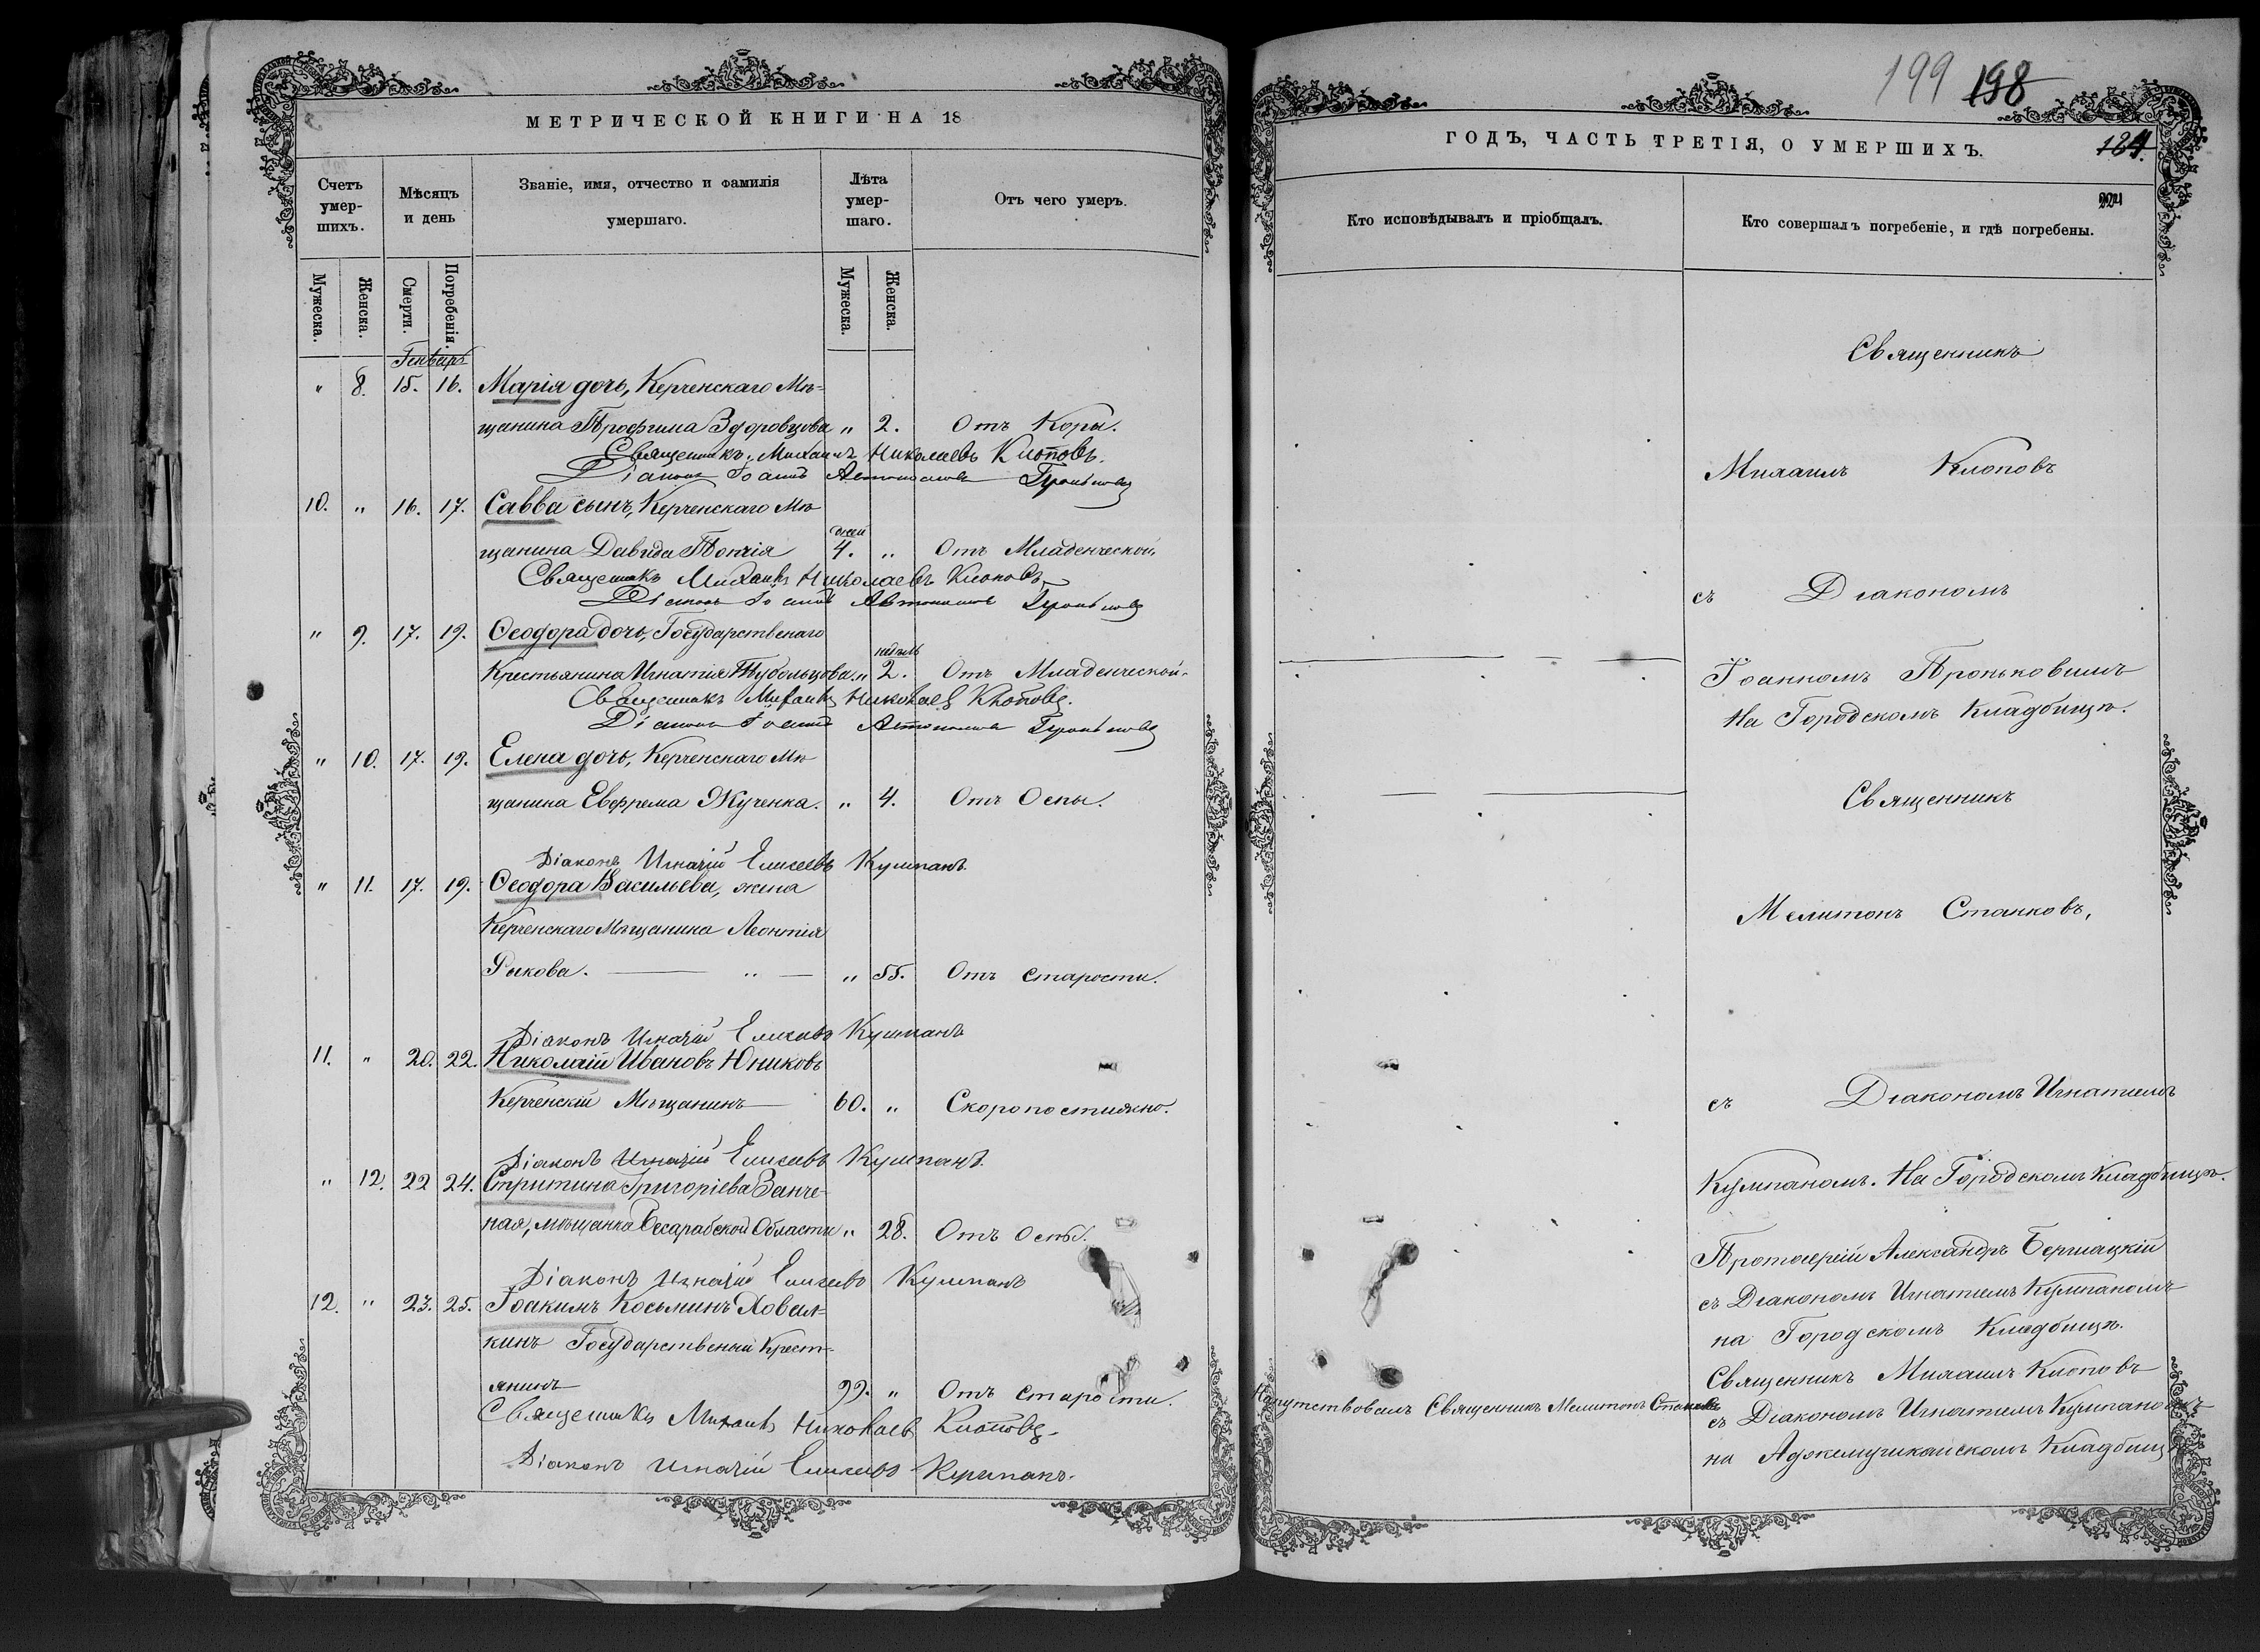 МЕТРИЧЕСКОЙ КНИГИ НА 18
Счетъ умер-шихъ.
Мѣсяцъ и день
Званіе, имя, отчество и фамилія умершаго.
Лѣта умер-шаго.
Отъ чего умеръ.
Мужеска.
Женска.
Смерти.
Погребенія.
Мужеска.
Женска.
Генварь
" 8. 15. 16. Марія дочь, Керченскаго Мѣ-
щанина Трофима Здоровцова " 2. Отъ Кори.
Священникъ Михаилъ Николаевъ Клоповъ.
Діаконъ Іоаннъ
10. " 16. 17. Савва сынъ, Керченскаго Мѣ
дней
щанина Давида 4. " Отъ Младенческой.
Священникъ Михаилъ Николаевъ Клоповъ
Діаконъ Іоаннъ
" 9. 17. 19. Ѳеодора дочь, Государственаго
недѣль
Крестьянина Игнатія " 2. Отъ Младенческой.
Священникъ Михаилъ Николаевъ Клоповъ.
Діаконъ Іоаннъ
" 10. 17. 19. Елена дочь, Керченскаго Мѣ
щанина Евфрема Жученка. " 4. Отъ Оспы.
Діаконъ Игнатій Елисеевъ Кумпанъ.
" 11. 17. 19. Ѳеодора Васильева, жена
Керченскаго Мѣщанина Леонтія
Рыкова. " 55. Отъ старости.
Діаконъ Игнатій Елисеевъ Кумпанъ
11. " 20. 22. Николай Ивановъ Юниковъ
Керченскій Мѣщанинъ 60. " Скоропостижно.
Діаконъ Игнатій Елисеевъ Кумпанъ.
" 12. 22 24. Григоріева Занче-
ная, мѣщанка Бесарабской Области " 28. Отъ Оспы.
Діаконъ Игнатій Елисеевъ Кумпанъ
12. " 23. 25. Іоакимъ Косьминъ Ховал-
кинъ Государственный Крест-
янинъ 99. " Отъ старости.
Священникъ Михаилъ Николаевъ Клоповъ.
Діаконъ Игнатій Елисеевъ Кумпанъ.
199 198
ГОДЪ, ЧАСТЬ ТРЕТІЯ, О УМЕРШИХЪ.
184.
224
Кто исповѣдывалъ и пріобщалъ.
Кто совершалъ погребеніе, и гдѣ погребены.
Священникъ
Михаилъ Клоповъ
съ Діакономъ
Іоанномъ Проньковымъ
На Городскомъ Кладбищѣ.
Священникъ
Мелитонъ Станковъ,
съ Діакономъ Игнатіемъ
Кумпаномъ. На Городскомъ Кладбищѣ.
Протоіерей Александръ Бершацкій
съ Діакономъ Игнатіемъ Кумпаномъ
на Городскомъ Кладбищѣ.
Священникъ Михаилъ Клоповъ
Напутствовалъ Священникъ Мелитонъ Станковъ
съ Діакономъ Игнатіемъ Кумпаномъ
на Аджемушкайскомъ Кладбищѣ